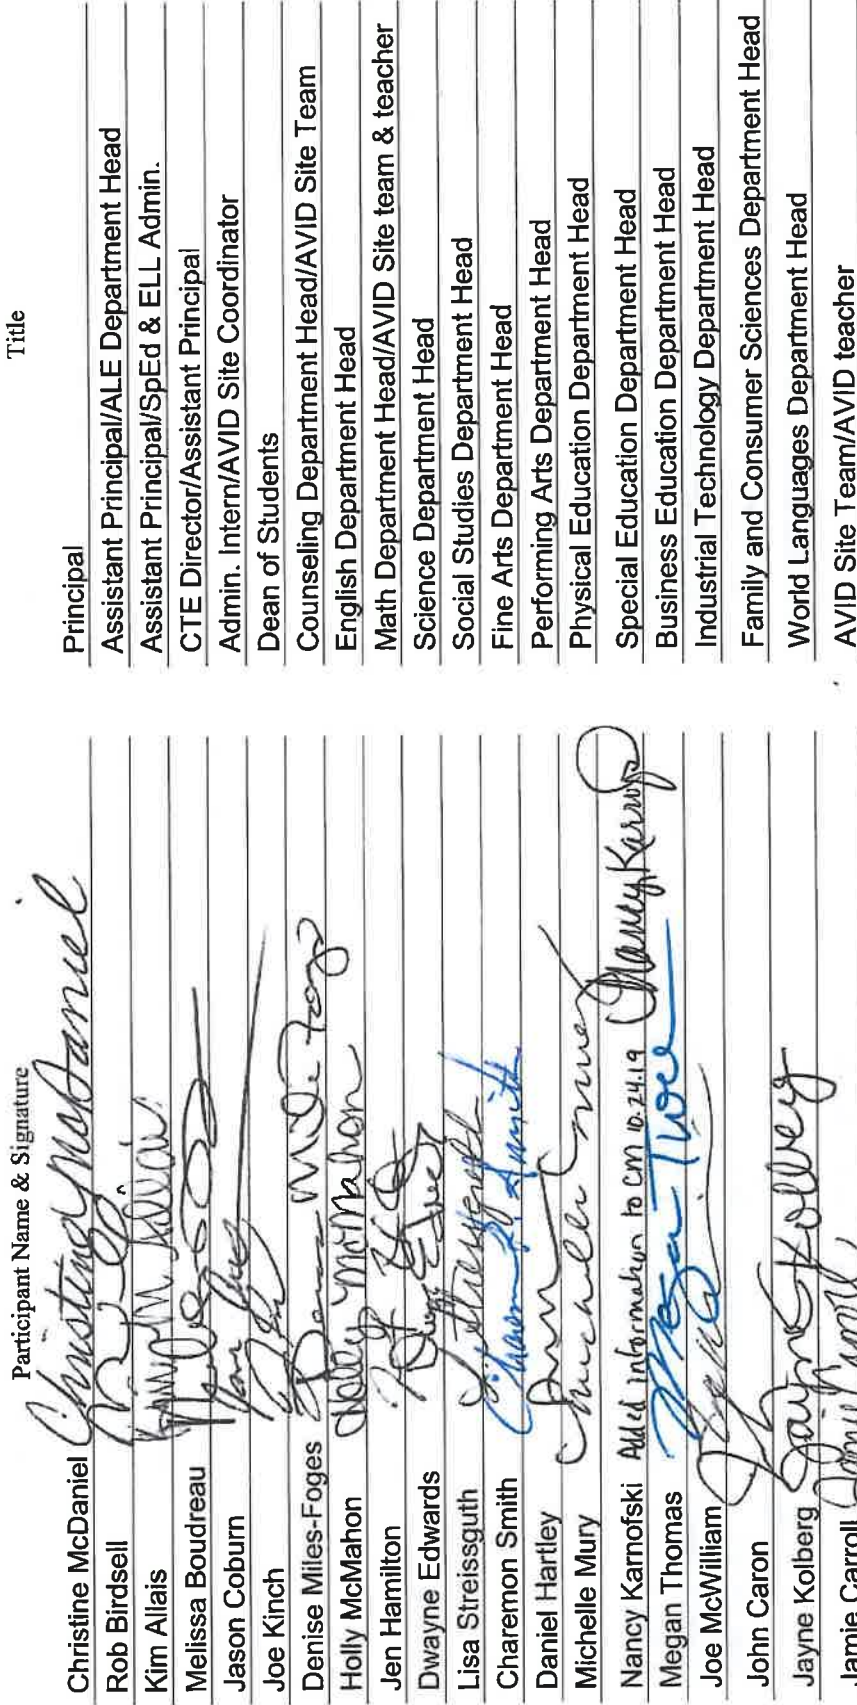 Participant Name & Signature Title
Christine McDaniel Christine McDaniel Principal
Rob Birdsell Assistant Principal/ALE Department Head
Kim Allais Assistant Principal/SpEd & ELL Admin.
Melissa Boudreau CTE Director/Assistant Principal
Jason Coburn Admin. Intern/AVID Site Coordinator
Joe Kinch Dean of Students
Denise Miles-Foges Counseling Department Head/AVID Site Team
Holly McMahon Holly McMahon English Department Head
Jen Hamilton Math Department Head/AVID Site team & teacher
Dwayne Edwards Science Department Head
Lisa Streissguth Social Studies Department Head
Charemon Smith Fine Arts Department Head
Daniel Hartley Performing Arts Department Head
Michelle Mury Physical Education Department Head
Nancy Karnofski Added Information to CM 10.24.19 Special Education Department Head
Megan Thomas Business Education Department Head
Joe McWilliam Industrial Technology Department Head
John Caron Family and Consumer Sciences Department Head
Jayne Kolberg Jayne Kolberg World Languages Department Head
Jamie Carroll AVID Site Team/AVID teacher